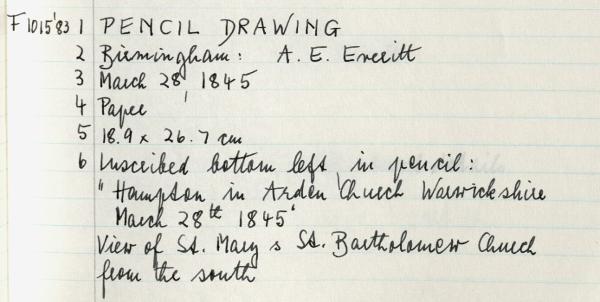 F1015'83 1 PENCIL DRAWING
2 Birmingham: A. E. Everitt
3 March 28, 1845
4 Paper
5 18.9 x 26.7 cm
6 Inscribed bottom left, in pencil:
"Hampton in Arden Church Warwickshire
March 28th 1845'
View of St. Mary & St. Bartholomew Church
from the south